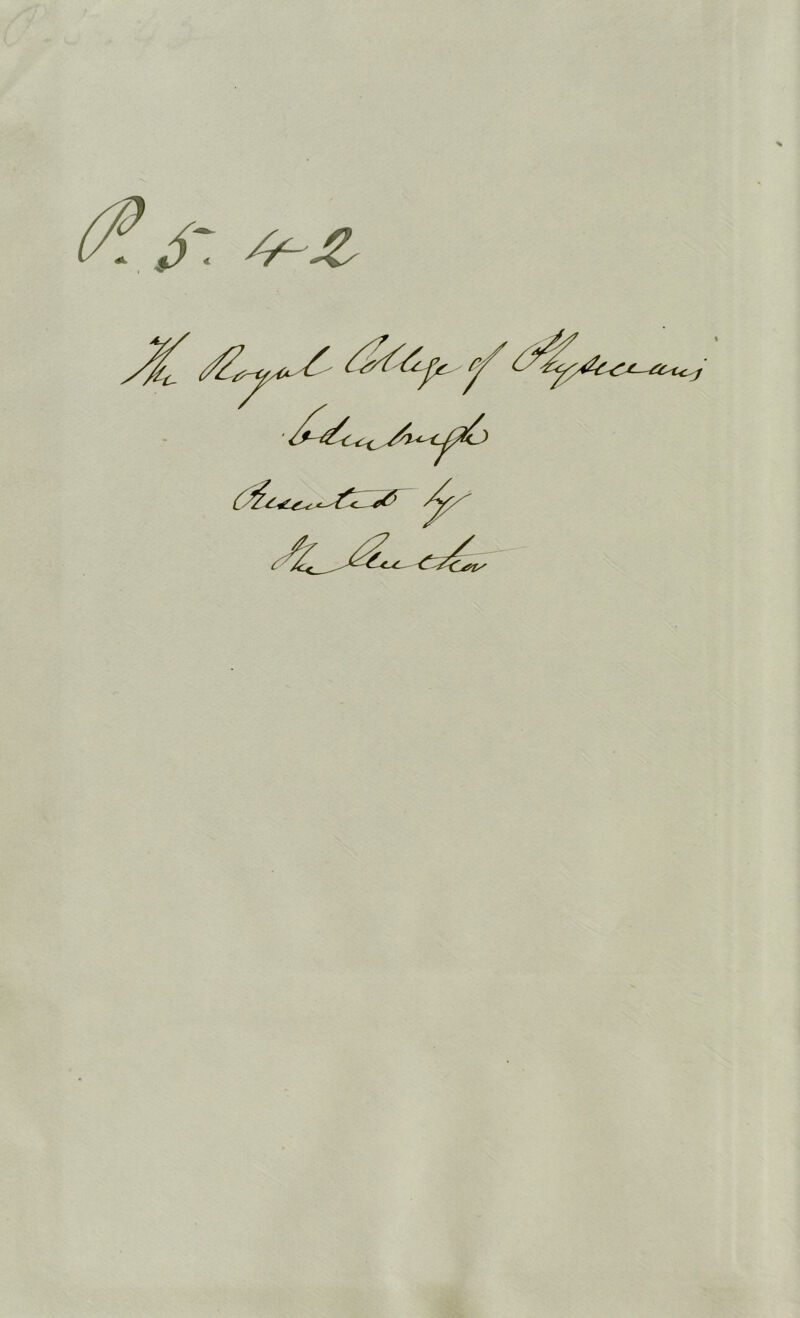 P. 5. 42
The Royal College of Physicians
Edinburgh
Presented by
The Author